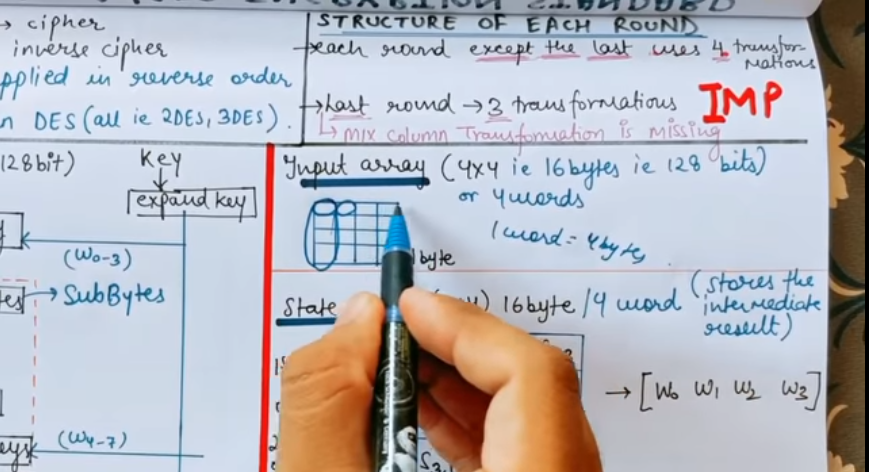 STANDARD
→ cipher
inverse cipher
applied in reverse order
n DES (all ie 2DES, 3DES).
STRUCTURE OF EACH ROUND
→each round except the last uses 4 transfor-
mations
→Last round → 3 transformations IMP
↳ Mix Column Transformation is missing
(128 bit) Key
expand key
(W0-3)
→ SubBytes
(W4-7)
Input array (4x4 ie 16 bytes ie 128 bits)
or 4 words
1 word = 4 bytes
1 byte
State 16 byte / 4 word (stores the
intermediate
result)
→ [W0 W1 W2 W3]